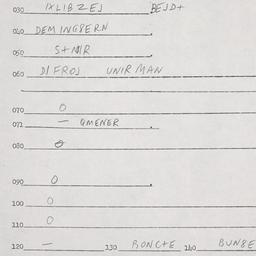 030 IXLIBZEJ BEJD+
040 DEMINGSERN
050 S+NIR
060 DIFROJ UNIRMAN
070 0
071 — GMENER
080 0
090 0
100 0
110 0
120 — 130 RONC+E 140 BUNSE